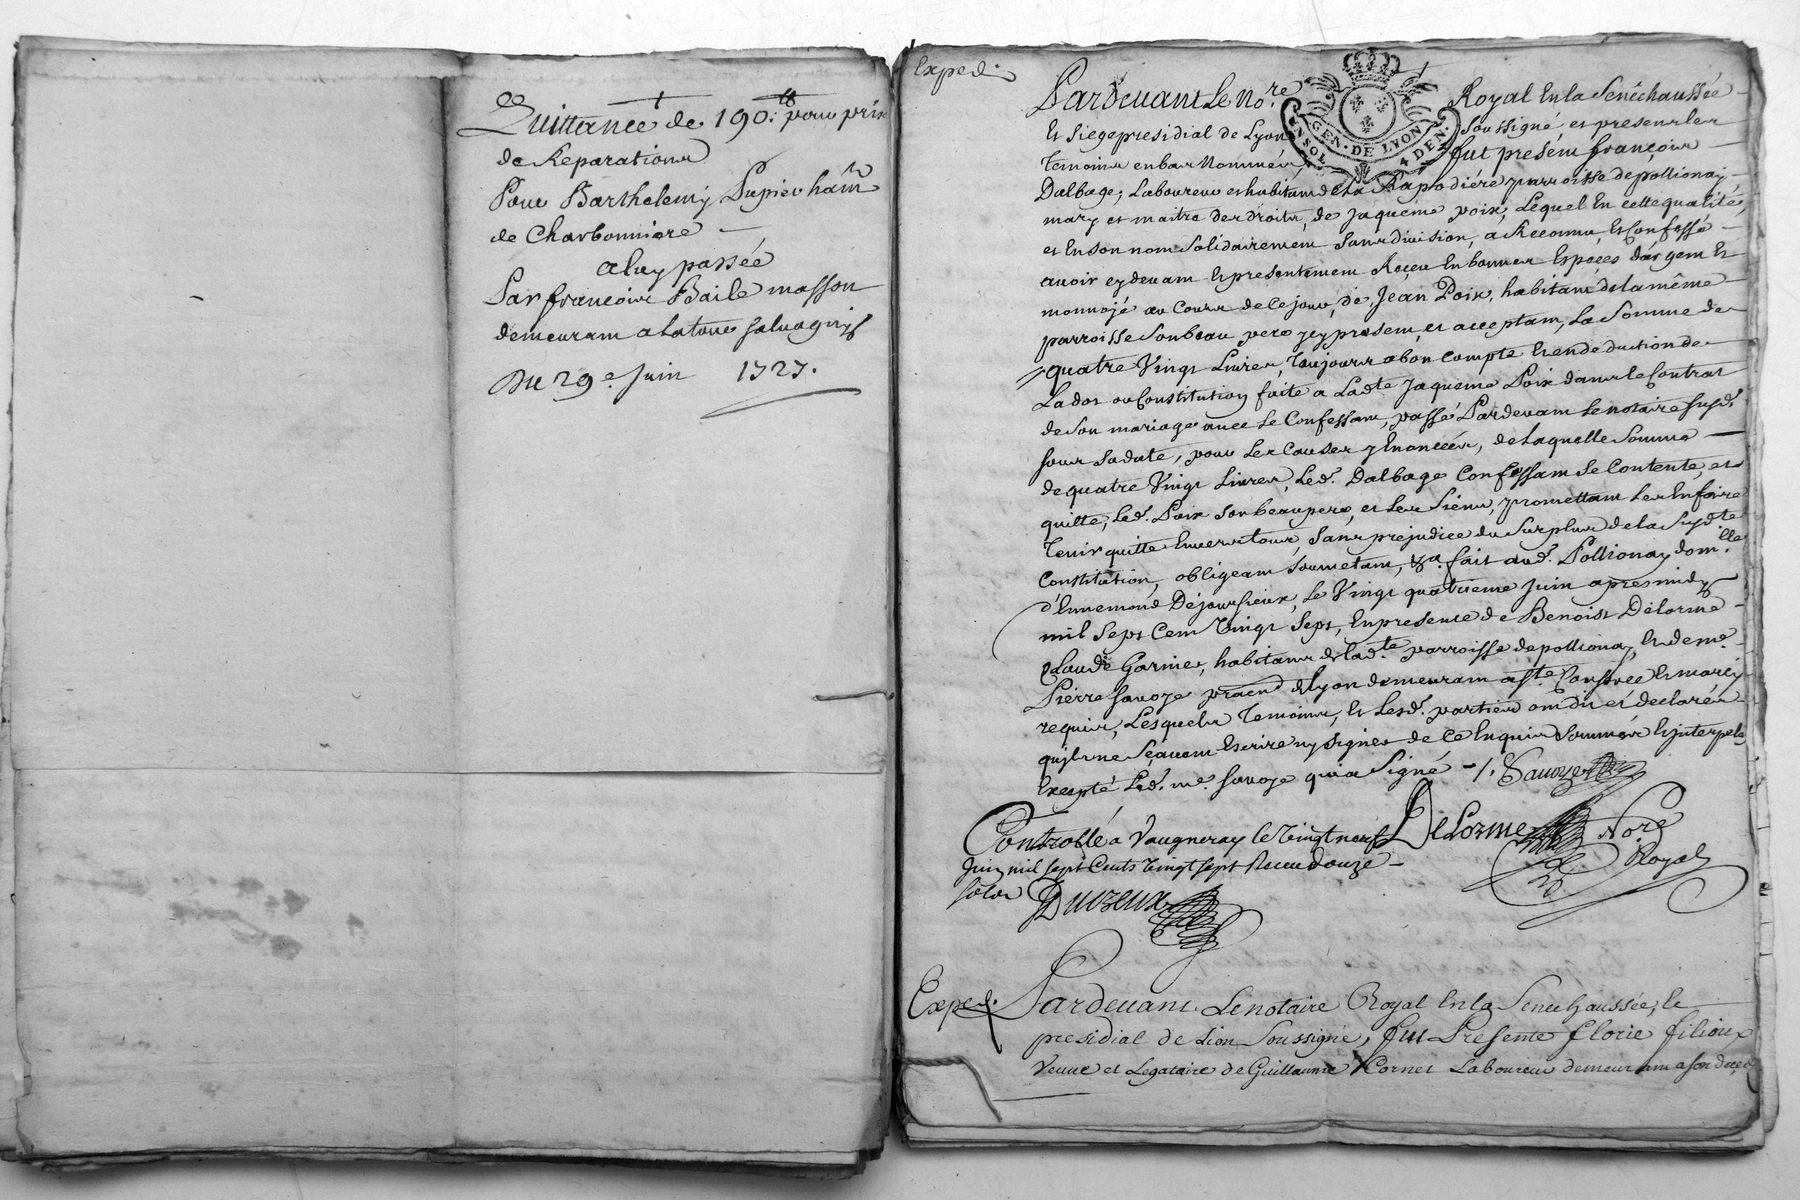 Quittance de 190 lt pour prix
de Reparations
Pour Barthelemy Pupier hãnt
de Charbonniere
a luy passée
Par françois Baile masson
demeurant a la tour salvagny
Du 29e Juin 1727.
Exped.
Pardevant Le Nore Royal En la Senéchaussée
Et Siege presidial de Lyon Soussigné, et presens les
Temoins en bas Nommés, fut present françois
Dalbage, Laboureur et habitant de la Rapodiére parroisse de pollionay
mary et maitre des droits, de Jaqueme poix, Lequel En cette qualité,
et En son nom Solidairement Sans division, a Reconnu, Et Confessé
avoir cy devant Et presentement Reçeu En bonnes Espéces d'argent Et
monnojé au Cours de Ce jour, de Jean Poix, habitant de la même
parroisse Son beau pere jcy present, et acceptant, La Somme de
quatre Vingt Livres, Toujours a bon Compte Et en deduction de
La dot ou Constitution faite a Ladte Jaqueme Poix dans le Contrat
de Son mariage avec Le Confessant, passé Pardevant Le notaire susd.
sous Sa date, pour Les Causes y Enoncées, de laquelle Somme
de quatre Vingt Livres, Led. Dalbage Confessant Se Contente, et
quitte, Led. Poix Son beaupere, et Les Siens, promettant Les En faire
Tenir quitte Envers tous, Sans prejudice du Surplus de la Susdte
Constitution, obligeant Soumetant, &a. fait aud. Pollionay domlle
d'Ennemond Dejoursieux, Le Vingt quatrieme Juin apres midy
mil Sept Cent Vingt Sept, En presence de Benoist Delorme
Claude Garnier, habitans de lad.te parroisse de pollionay, Et de me.
Pierre Savoye praen de Lyon demeurant a Ste Consorce Et marcy
requis, Lesquels Temoins, Et Lesd. parties ont dit et declaré
qu'ils ne Sçavent Ecrire ny Signer de Ce Enquis Sommés Et jnterpelés
Excepté Led. me. Savoye qui a Signé -/. Savoye
DeLorme Nore
Royal
Controllé a Vaugneray le Vingt neuf
Juin mil sept Cents Vingt sept Receu douze
sols Duvzeux
Exped. Pardevant Le notaire Royal En la Senechaussée, le
presidial de Lion Soussigné, fut Presente Florie filioux
Veuve et Legataire de Guillaume Cornet Laboureur demeurant a son deçés
GEN. DE LYON
UN SOL. 4 DEN.